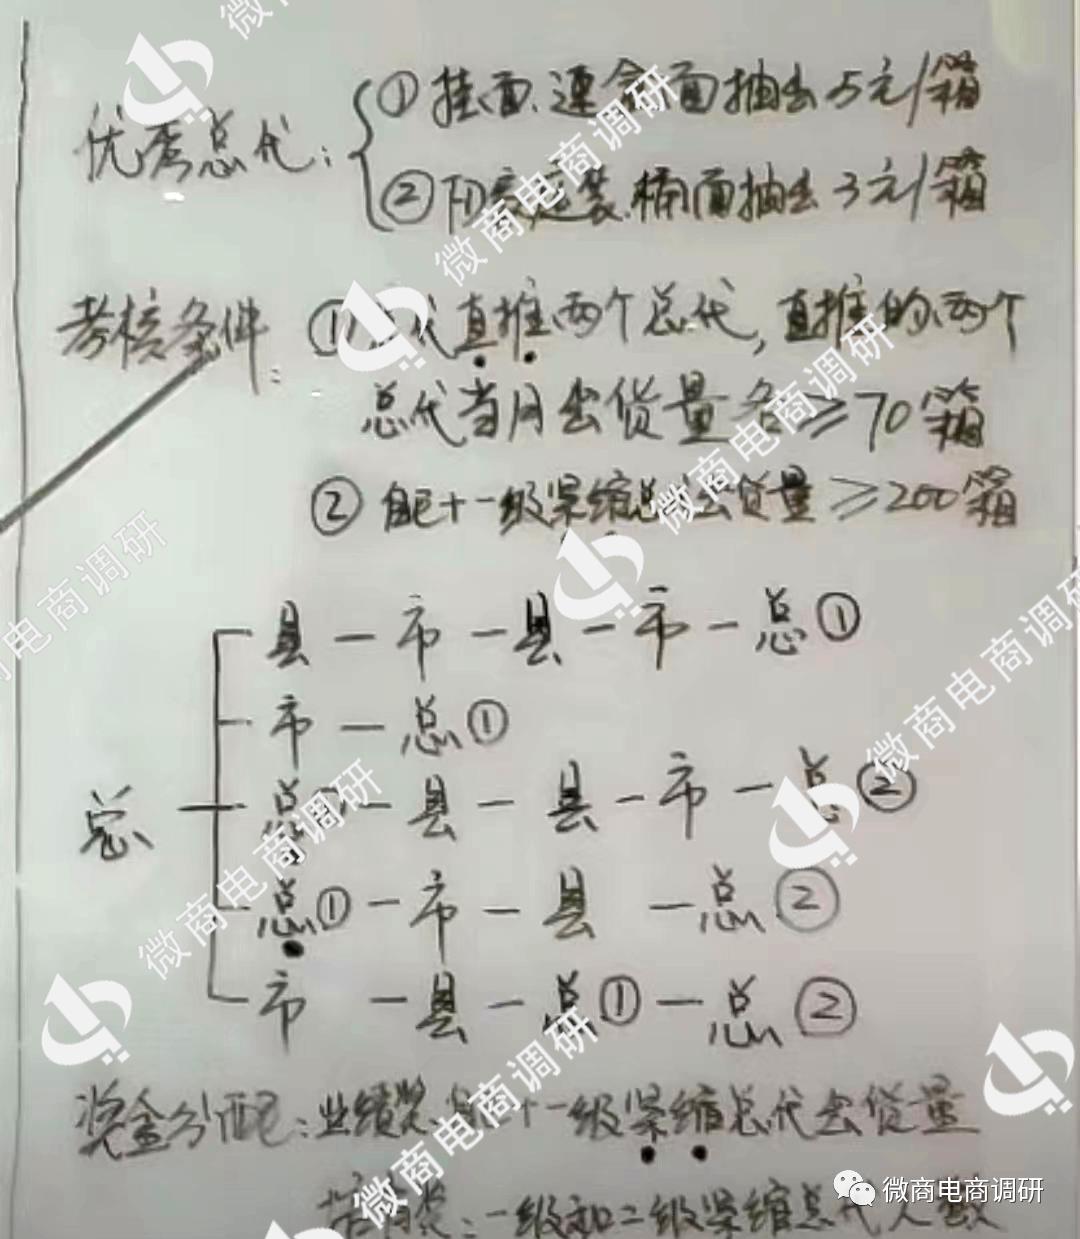 优秀总代：
①挂面、速食面抽出5元/箱
②阳春足装、桶面抽出3元/箱
考核条件：①总代直推两个总代，直推的两个
总代当月出货量各≥70箱
②自己十一级紧缩总代出货量≥200箱
总
县－市－县－市－总①
市－总①
总①－县－县－市－总②
总①－市－县－总②
市－县－总①－总②
奖金分配：业绩奖：自己十一级紧缩总代出货量
奖：一级和二级紧缩总代人数
微商电商调研
微商电商调研
微商电商调研
微商电商调研
微商电商调研
微商电商调研
微商电商调研
微商电商调研